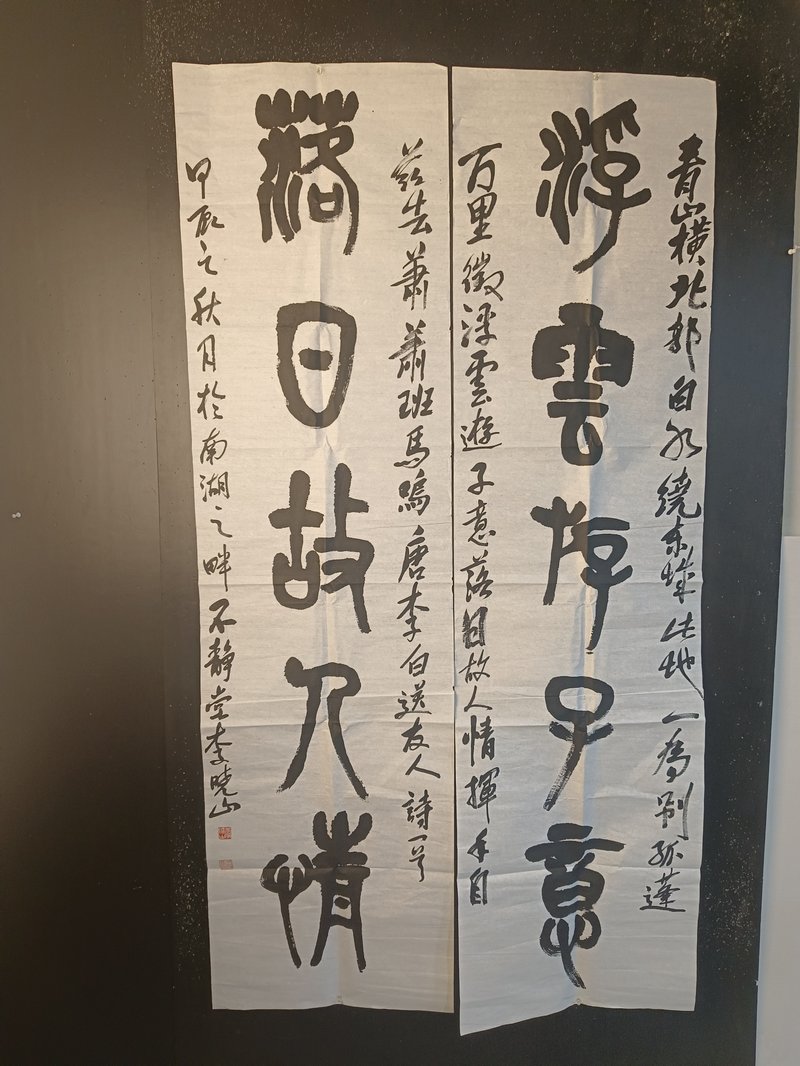 青山橫北郭白水繞東城此地一為別孤蓬
浮雲斿子意
万里徵浮雲遊子意落日故人情揮手自
茲去蕭蕭班馬鳴唐李白送友人詩一首
落日故人情
甲辰之秋月於南湖之畔不靜堂李晓山